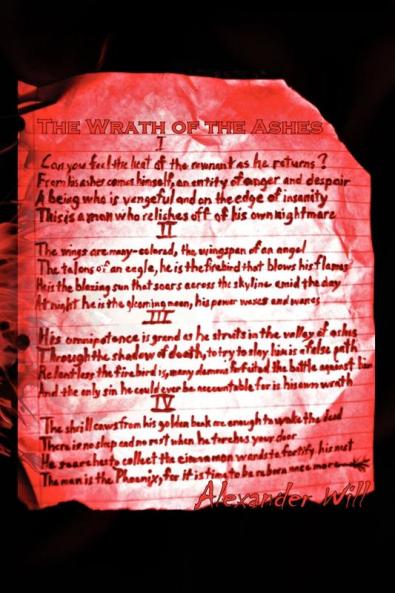 THE WRATH OF THE ASHES
I
Can you feel the heat of the revenant as he returns?
From his ashes comes himself, an entity of anger and despair
A being who is vengeful and on the edge of insanity
This is a man who relishes off of his own nightmare
II
The wings are many-colored, the wingspan of an angel
The talons of an eagle, he is the firebird that blows his flames
He is the blazing sun that soars across the skyline amid the day
At night he is the gloaming moon, his power waxes and wanes
III
His omnipotence is grand as he struts in the valley of ashes
Through the shadow of death, to try to slay him is a false path
Relentless the firebird is, many demons forfeited the battle against him
And the only sin he could ever be accountable for is his own wrath
IV
The shrill caws from his golden beak are enough to wake the dead
There is no sleep and no rest when he torches your door
He searches to collect the cinnamon wands to fortify his nest
The man is the Phoenix, for it is time to be reborn once more
Alexander Will